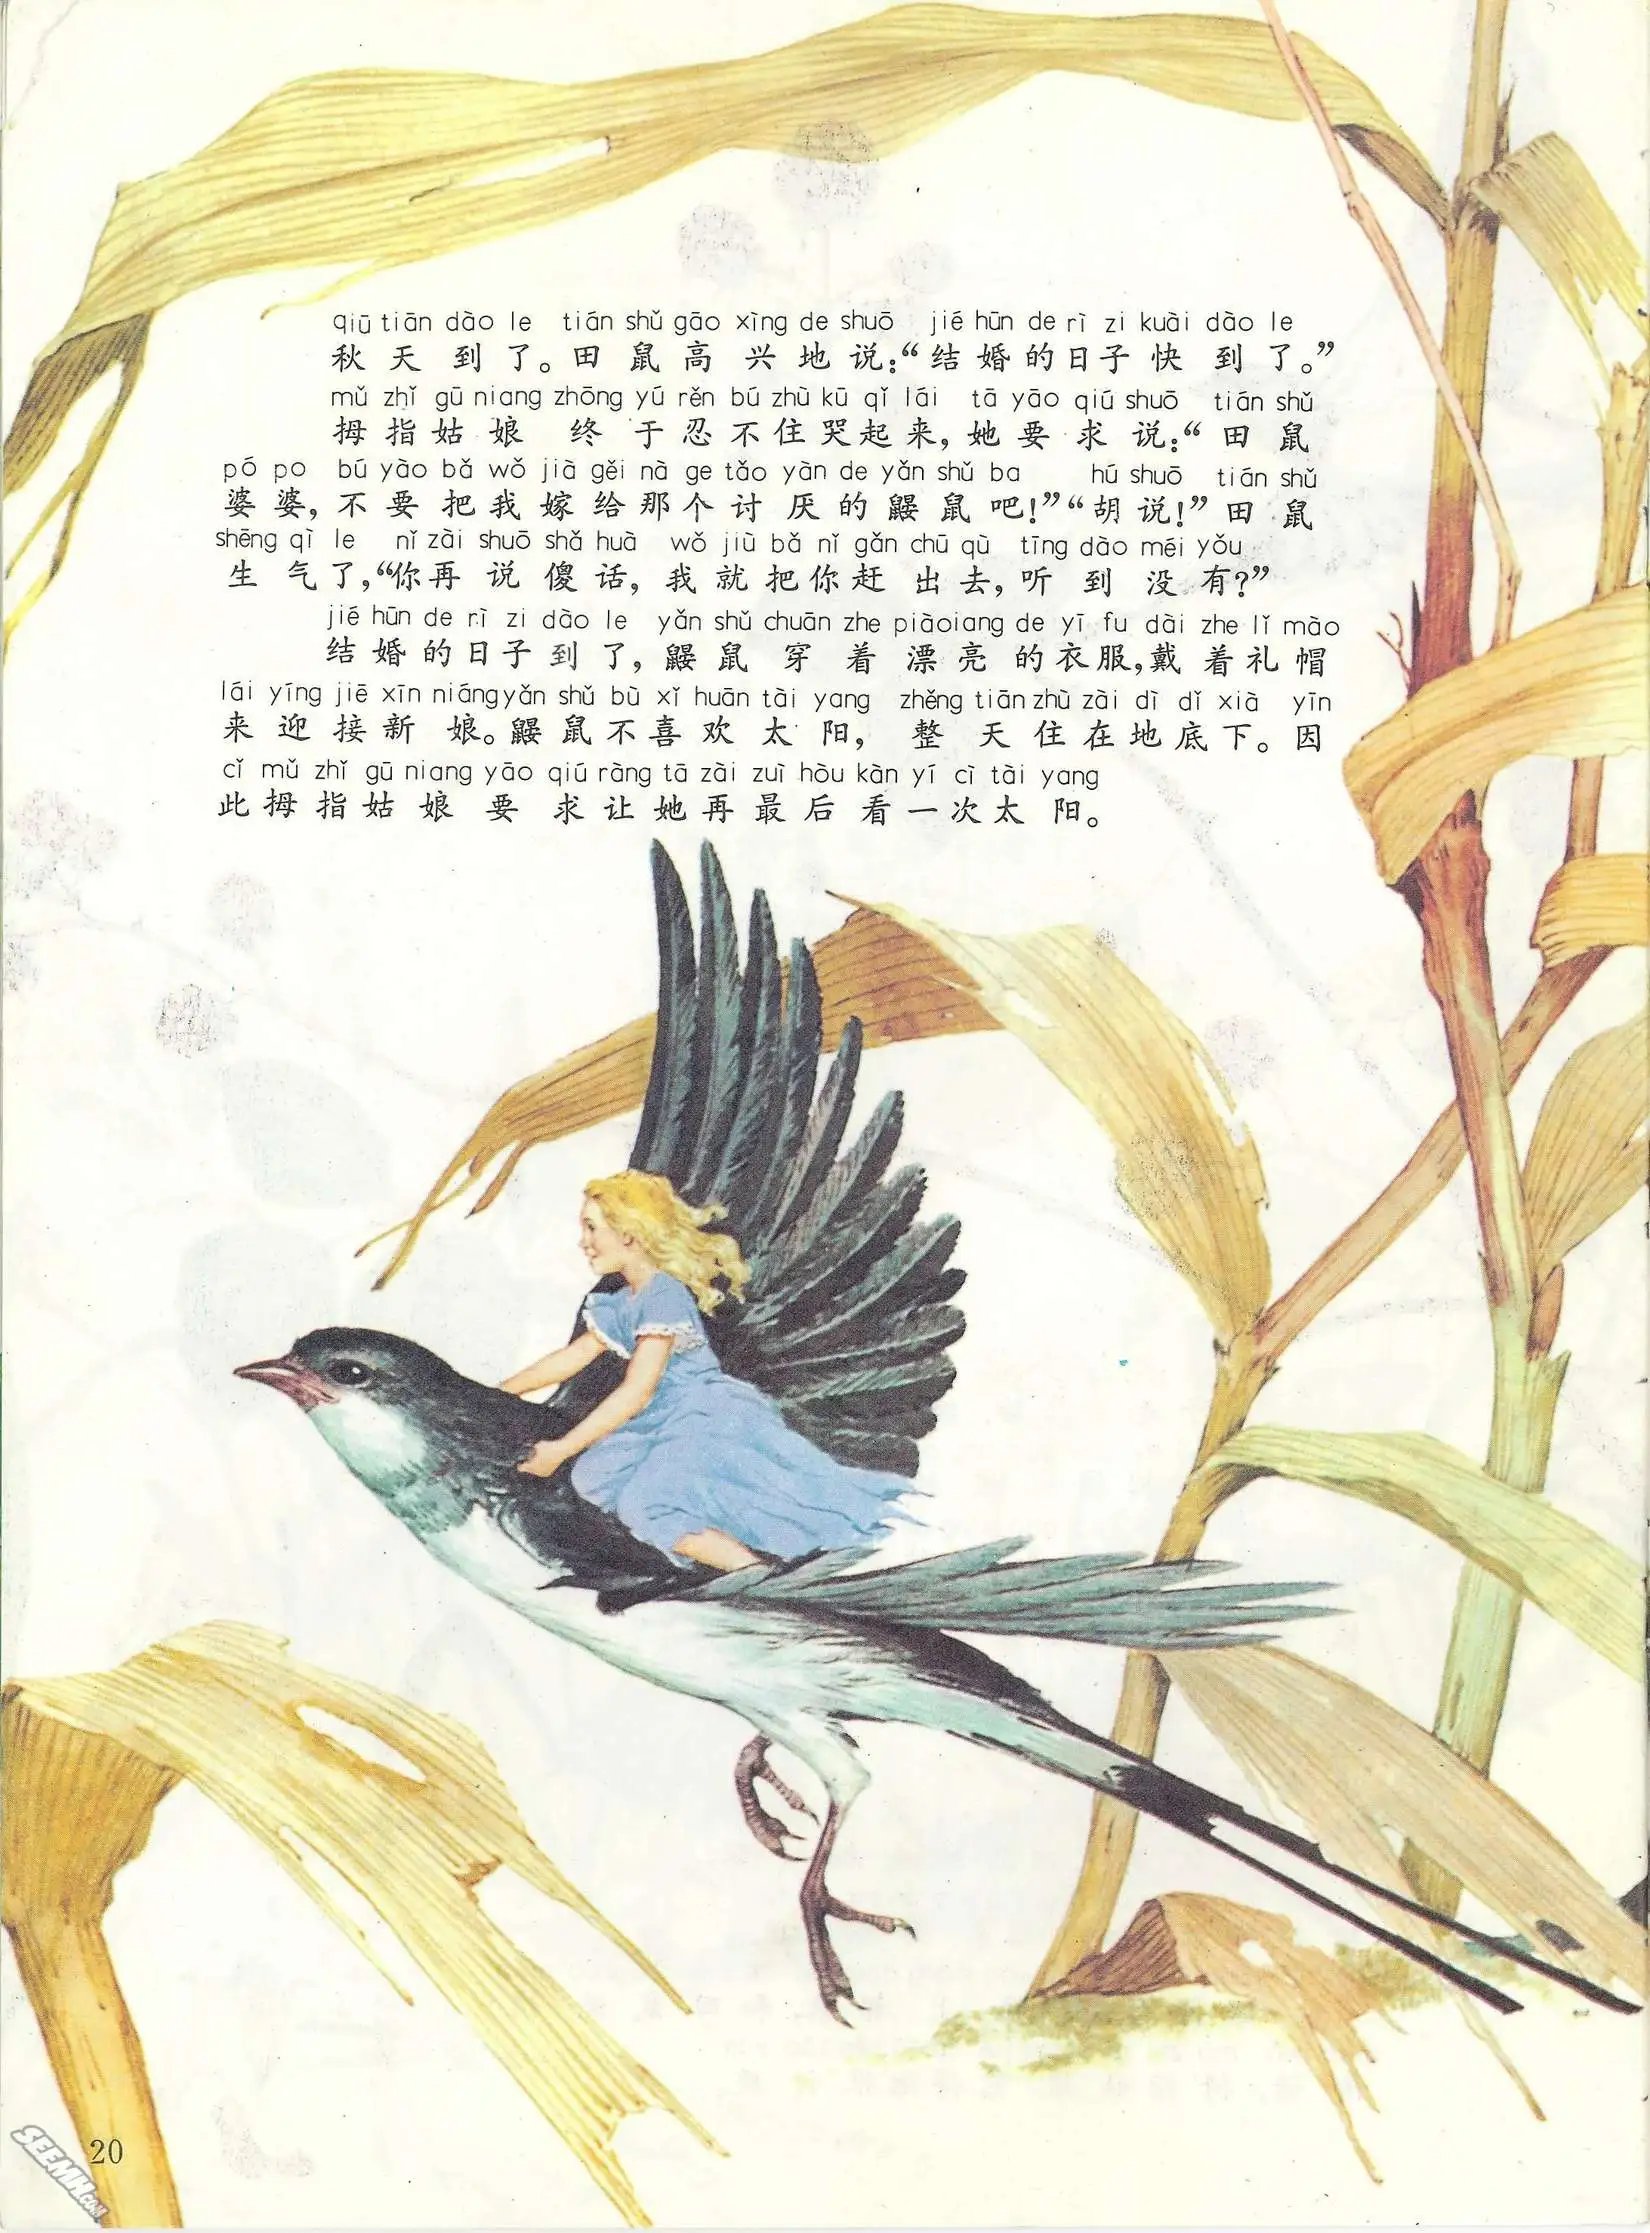 qiū tiān dào le tián shǔ gāo xìng de shuō jié hūn de rì zi kuài dào le
秋天到了。田鼠高兴地说:“结婚的日子快到了。”
mǔ zhǐ gū niang zhōng yú rěn bú zhù kū qǐ lái tā yāo qiú shuō tián shǔ
拇指姑娘终于忍不住哭起来,她要求说:“田鼠
pó po bú yào bǎ wǒ jià gěi nà ge tǎo yàn de yǎn shǔ ba hú shuō tián shǔ
婆婆,不要把我嫁给那个讨厌的鼹鼠吧!”“胡说!”田鼠
shēng qì le nǐ zài shuō shǎ huà wǒ jiù bǎ nǐ gǎn chū qù tīng dào méi yǒu
生气了,“你再说傻话,我就把你赶出去,听到没有?”
jié hūn de rì zi dào le yǎn shǔ chuān zhe piàoiang de yī fu dài zhe lǐ mào
结婚的日子到了,鼹鼠穿着漂亮的衣服,戴着礼帽
lái yíng jiē xīn niáng yǎn shǔ bù xǐ huān tài yang zhěng tiān zhù zài dì dǐ xià yīn
来迎接新娘。鼹鼠不喜欢太阳,整天住在地底下。因
cǐ mǔ zhǐ gū niang yāo qiú ràng tā zài zuì hòu kàn yí cì tài yang
此拇指姑娘要求让她再最后看一次太阳。
20
SEEMH.COM